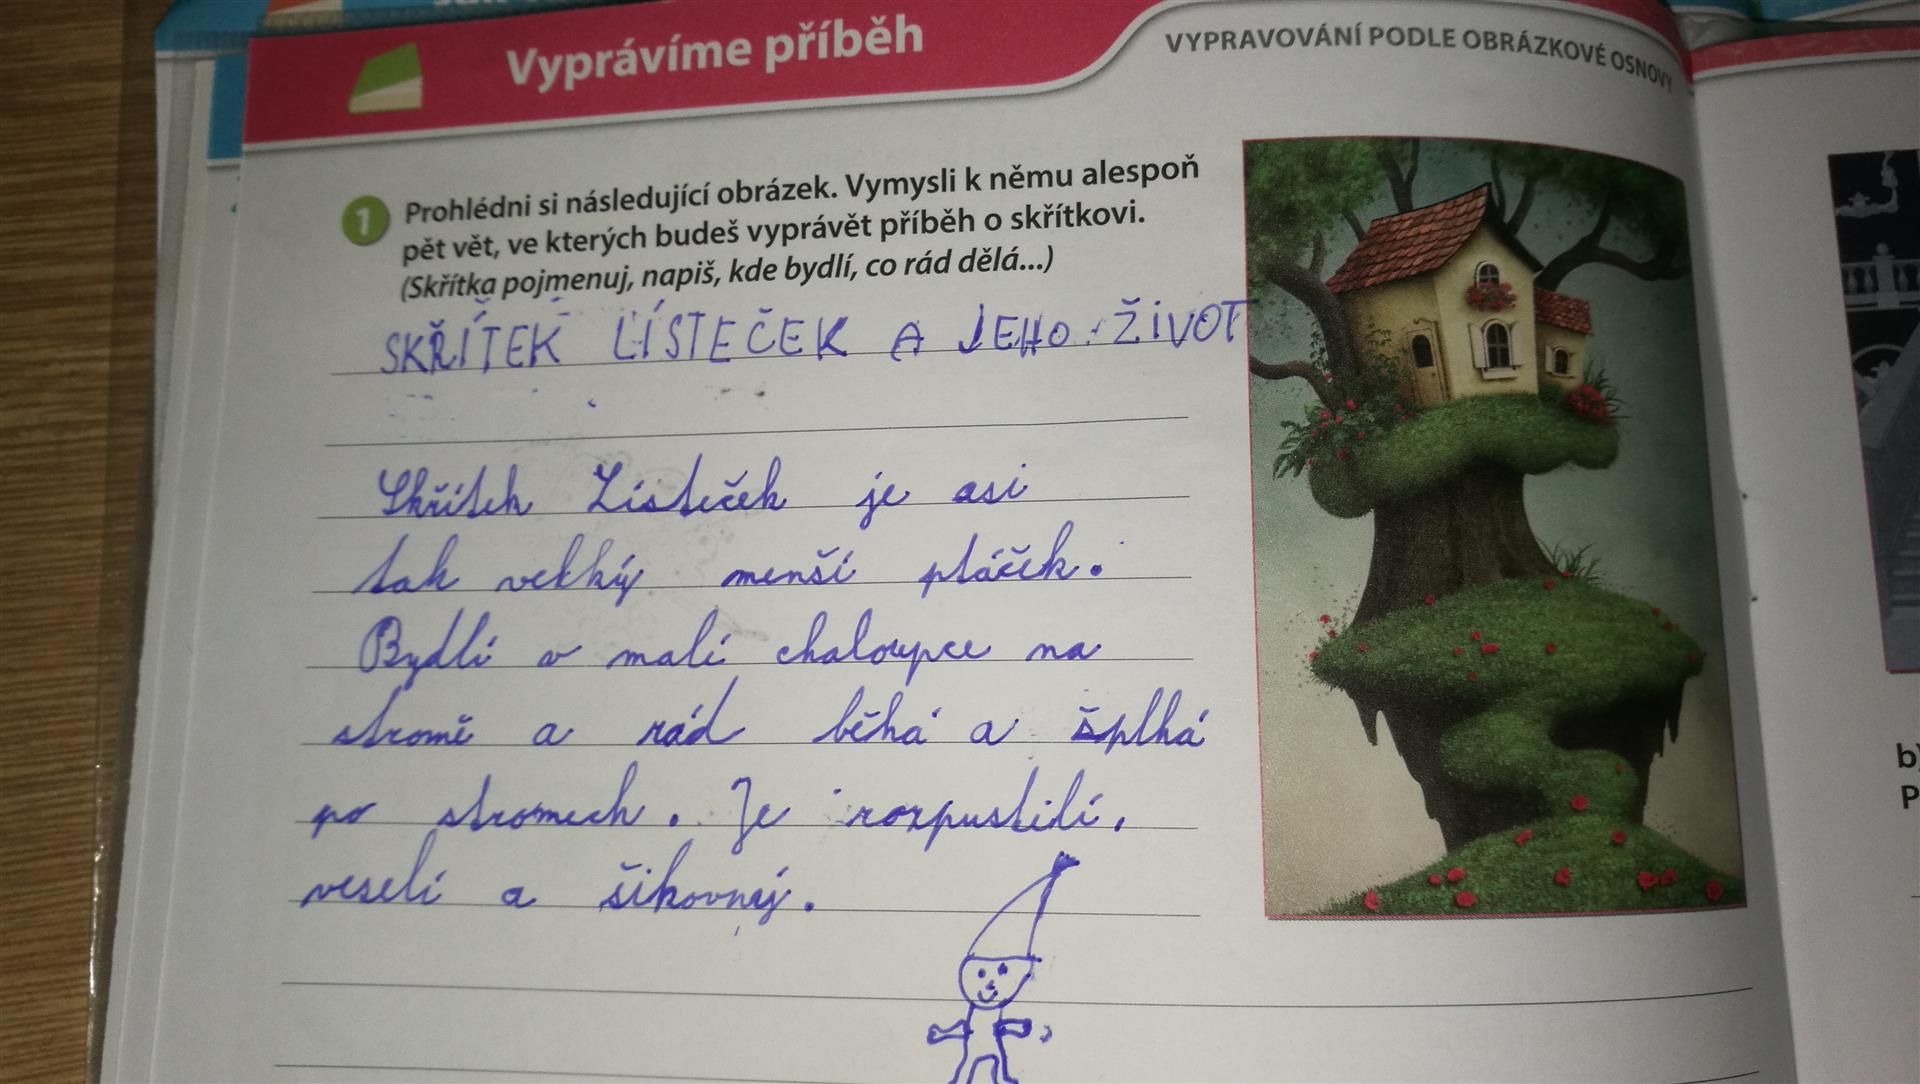 Vyprávíme příběh
VYPRAVOVÁNÍ PODLE OBRÁZKOVÉ OSNOVY
1 Prohlédni si následující obrázek. Vymysli k němu alespoň
pět vět, ve kterých budeš vyprávět příběh o skřítkovi.
(Skřítka pojmenuj, napiš, kde bydlí, co rád dělá...)
SKŘÍTEK LÍSTEČEK A JEHO ŽIVOT
Skřítek Lísteček je asi
tak velký menší ptáček.
Bydlí v malí chaloupce na
stromě a rád běhá a šplhá
po stromech. Je rozpustilí,
veselí a šikovný.
b)
P